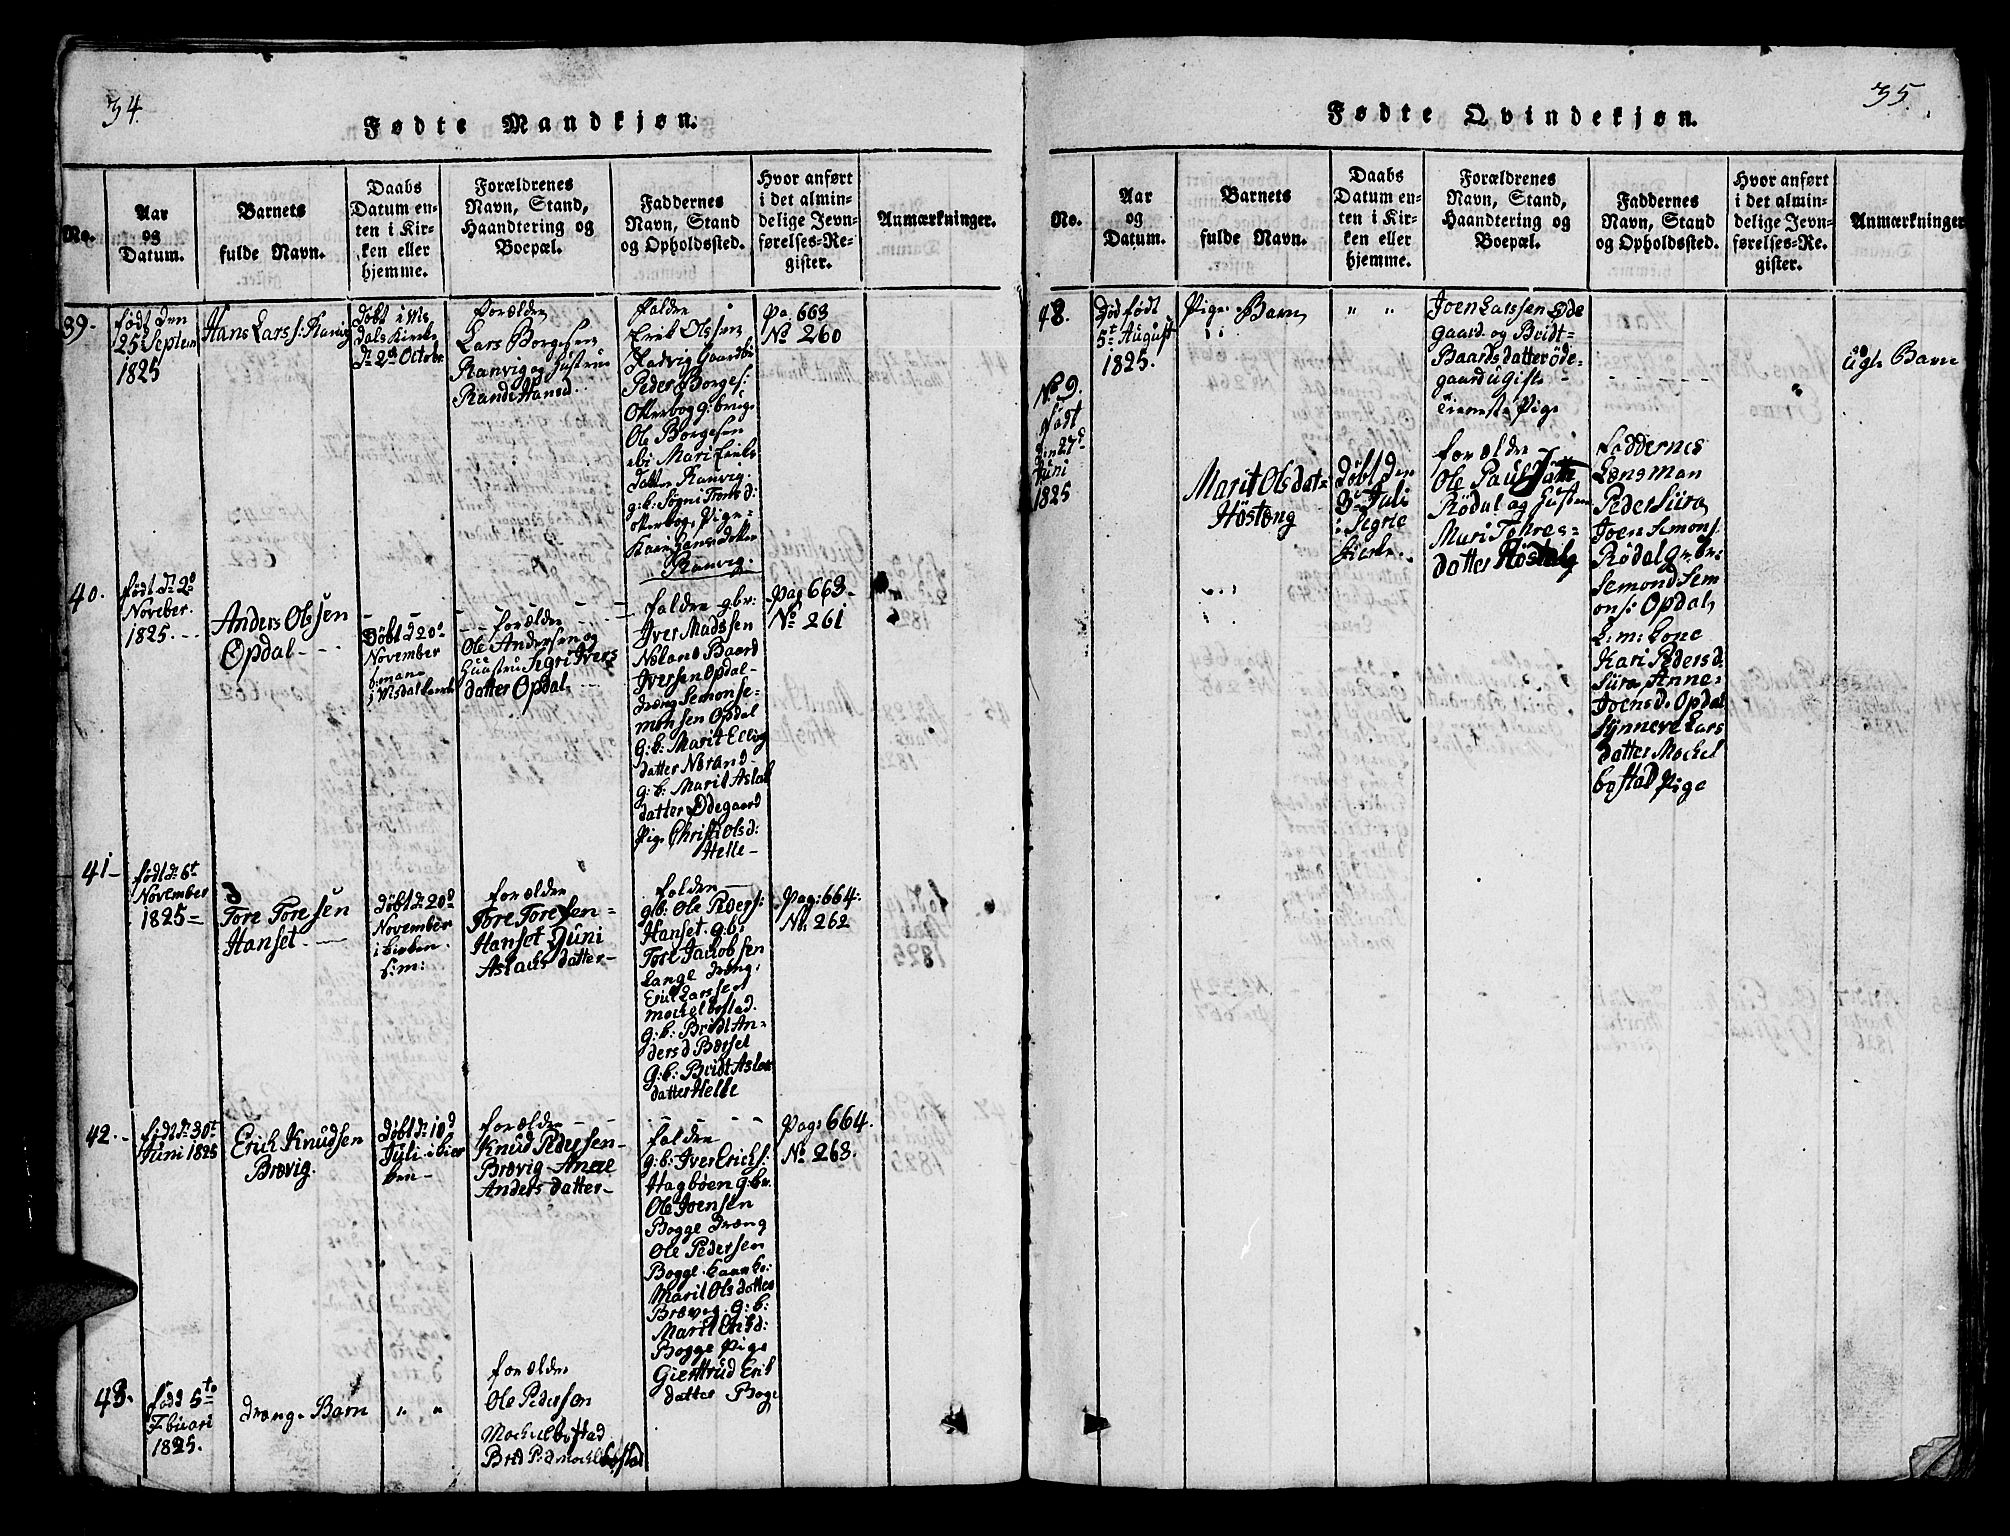 34.
Fødte Mandkjøn.
No.
Aar
og
Datum.
Barnets
fulde Navn.
Daabs
Datum en-
ten i Kir-
ken eller
hjemme.
Forældrenes
Navn, Stand,
Haandtering og
Boepæl.
Faddernes
Navn, Stand
og Opholdssted.
Hvor anført
i det almin-
delige Jevn-
førelses-Re-
gister.
Anmærkninger.
39.
født den
25 Septem
1825
Hans Larss: Ranvig
Døbt i Vis
dals Kirke
d: 2d Octobr
forældre
Lars Borgesen
Ranvig og Hustrue
Randi Hansd.
faldre
Erik Olssen
Peder Borges:
Ole Borgesen
datter Ranvig
Ranvig.
Pa. 663
No 260
40.
født d: 2d
Noveber.
1825.
Anders Olssen
Opdal
Døbt d 20d
November
i Visdal kirke
forældre
Ole Andersen og
Huustru Segri Ivers
datter Opdal
faldre g.br:
Iver Madssen
Nøland Baard
Iversen Opdal
dræng Semon Se-
monsen Opdal
g:b: Marit Elling
datter Nørand
g:b: Marit Aslak
datter Ødegaard
Pige Christi Olsd:
Helle
Pag 663.
No 261
41
født d: 6t
November
1825
Tore Toresen
Hanset
døbt d: 20d
November
forældre
Tore Toresen
Hanset Guni
Aslachs datter
faldre
gb: Ole Peders:
Hanset. g.b:
Tore Jacobsen
Lange dræng:
Erik Larssen
Mochelbostad.
g:b: Bridt An-
ders d Bærset
g:b: Bridt Aslak
datter Helle
Pag: 664.
No. 262
42.
født d: 30t
Juni 1825
Erich Knudsen
Brøvig.
døbt d: 10d
Juli i kier
ken
forældre
Knud Pedersen
Brøvig Anne
Anders datter
faldre
g:b: Iver Erichs:
Hagbøen g.br.
Ole Joensen
Bogge dræng
Ole Pedersen
Bogge.
Marit Olsdatter
Brøveg. g:b:
Marit Erikd:
Bogge Pige
Giertrud Erik
datter Boge
Pag: 664.
No. 263.
43.
født 5te
Febuari
1825.
dræng. Barn
" "
forældre
Ole Pedersen
Mochelbostad
Brid P.d Mochlbostad
35.
Fødte Qvindekjøn.
No.
Aar
og
Datum.
Barnets
fulde Navn.
Daabs
Datum en-
ten i Kir-
ken eller
hjemme.
Forældrenes
Navn, Stand,
Haandtering og
Boepæl.
Faddernes
Navn, Stand
og Opholdssted.
Hvor anført
i det almin-
delige Jevn-
førelses-Re-
gister.
Anmærkninger
48.
Død født
5t August
1825.
Pige Barn
" "
Joen Larssen Øde
gaard og Bridt
Baardsdatter Øde-
gaard ugift
Tieneste Pige
ægte Barn
No 9.
født
den 27d
Juni
1825
Marit Olsdat
Høsteng
Døbt den
3d Juli
Kirke.
forældre
Ole Paul
Rødal og Hustrue
Mari Tohres-
datter Rødal
Faddernes
Lensman
Peder Sira
Joen Semons:
Rødal
Semond Sem
ons: Opdal,
Kari Pedersd:
Sira, Anne
Joensd. Opdal
Synneve Lars
datter Mochel
bostad Pige